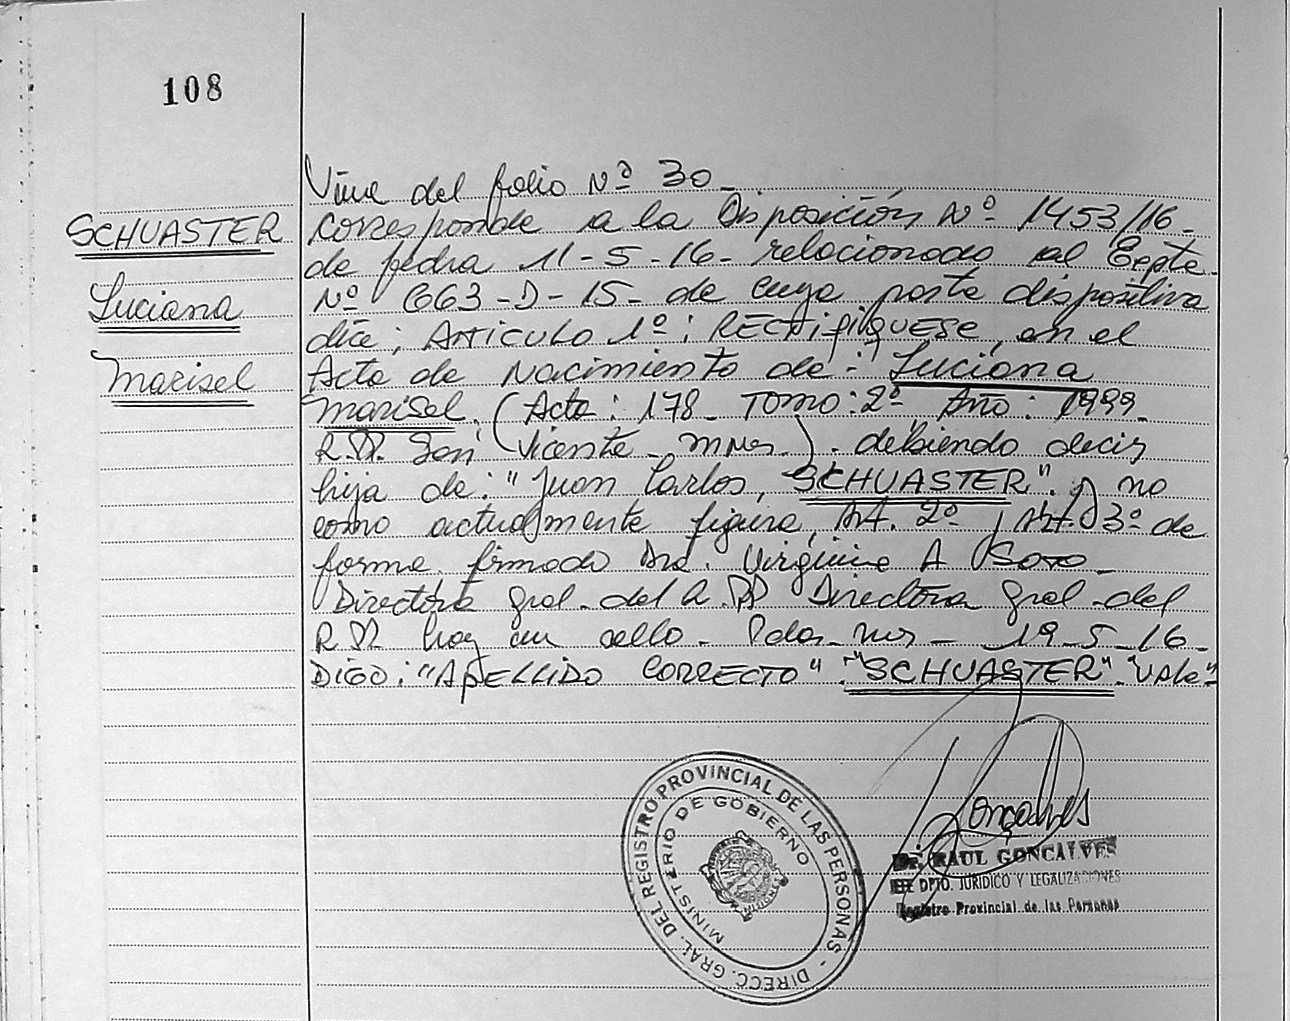 108
SCHUASTER
Luciana
Marisel
Viene del folio Nº 30_
corresponde a la Disposición Nº 1453/16_
de fecha 11-5-16_ relacionado al Expte_
Nº 663-D-15_ de cuya parte dispositiva
dice; ARTICULO 1º: RECTIFIQUESE, en el
Acta de Nacimiento de: Luciana
Marisel. (Acta: 178_ Tomo: 2º Año: 1999_
San Vicente_ Mnes). debiendo decir
hija de: "Juan Carlos, SCHUASTER". y no
como actualmente figura, Art. 2º y Art. 3º de
forma firmado Dra. Virginia A Soto_
Directora Gral_ del Directora Gral_ del
hay un sello_ Pdas_ Mns_ 19_5_16_
DIGO: "APELLIDO CORRECTO": "SCHUASTER". "Vale"
DIRECC. GRAL. DEL REGISTRO PROVINCIAL DE LAS PERSONAS -
MINISTERIO DE GOBIERNO
MISIONES
Goncalves
Dr. RAUL GONCALVES
JEFE DPTO. JURIDICO Y LEGALIZACIONES
Registro Provincial de las Personas